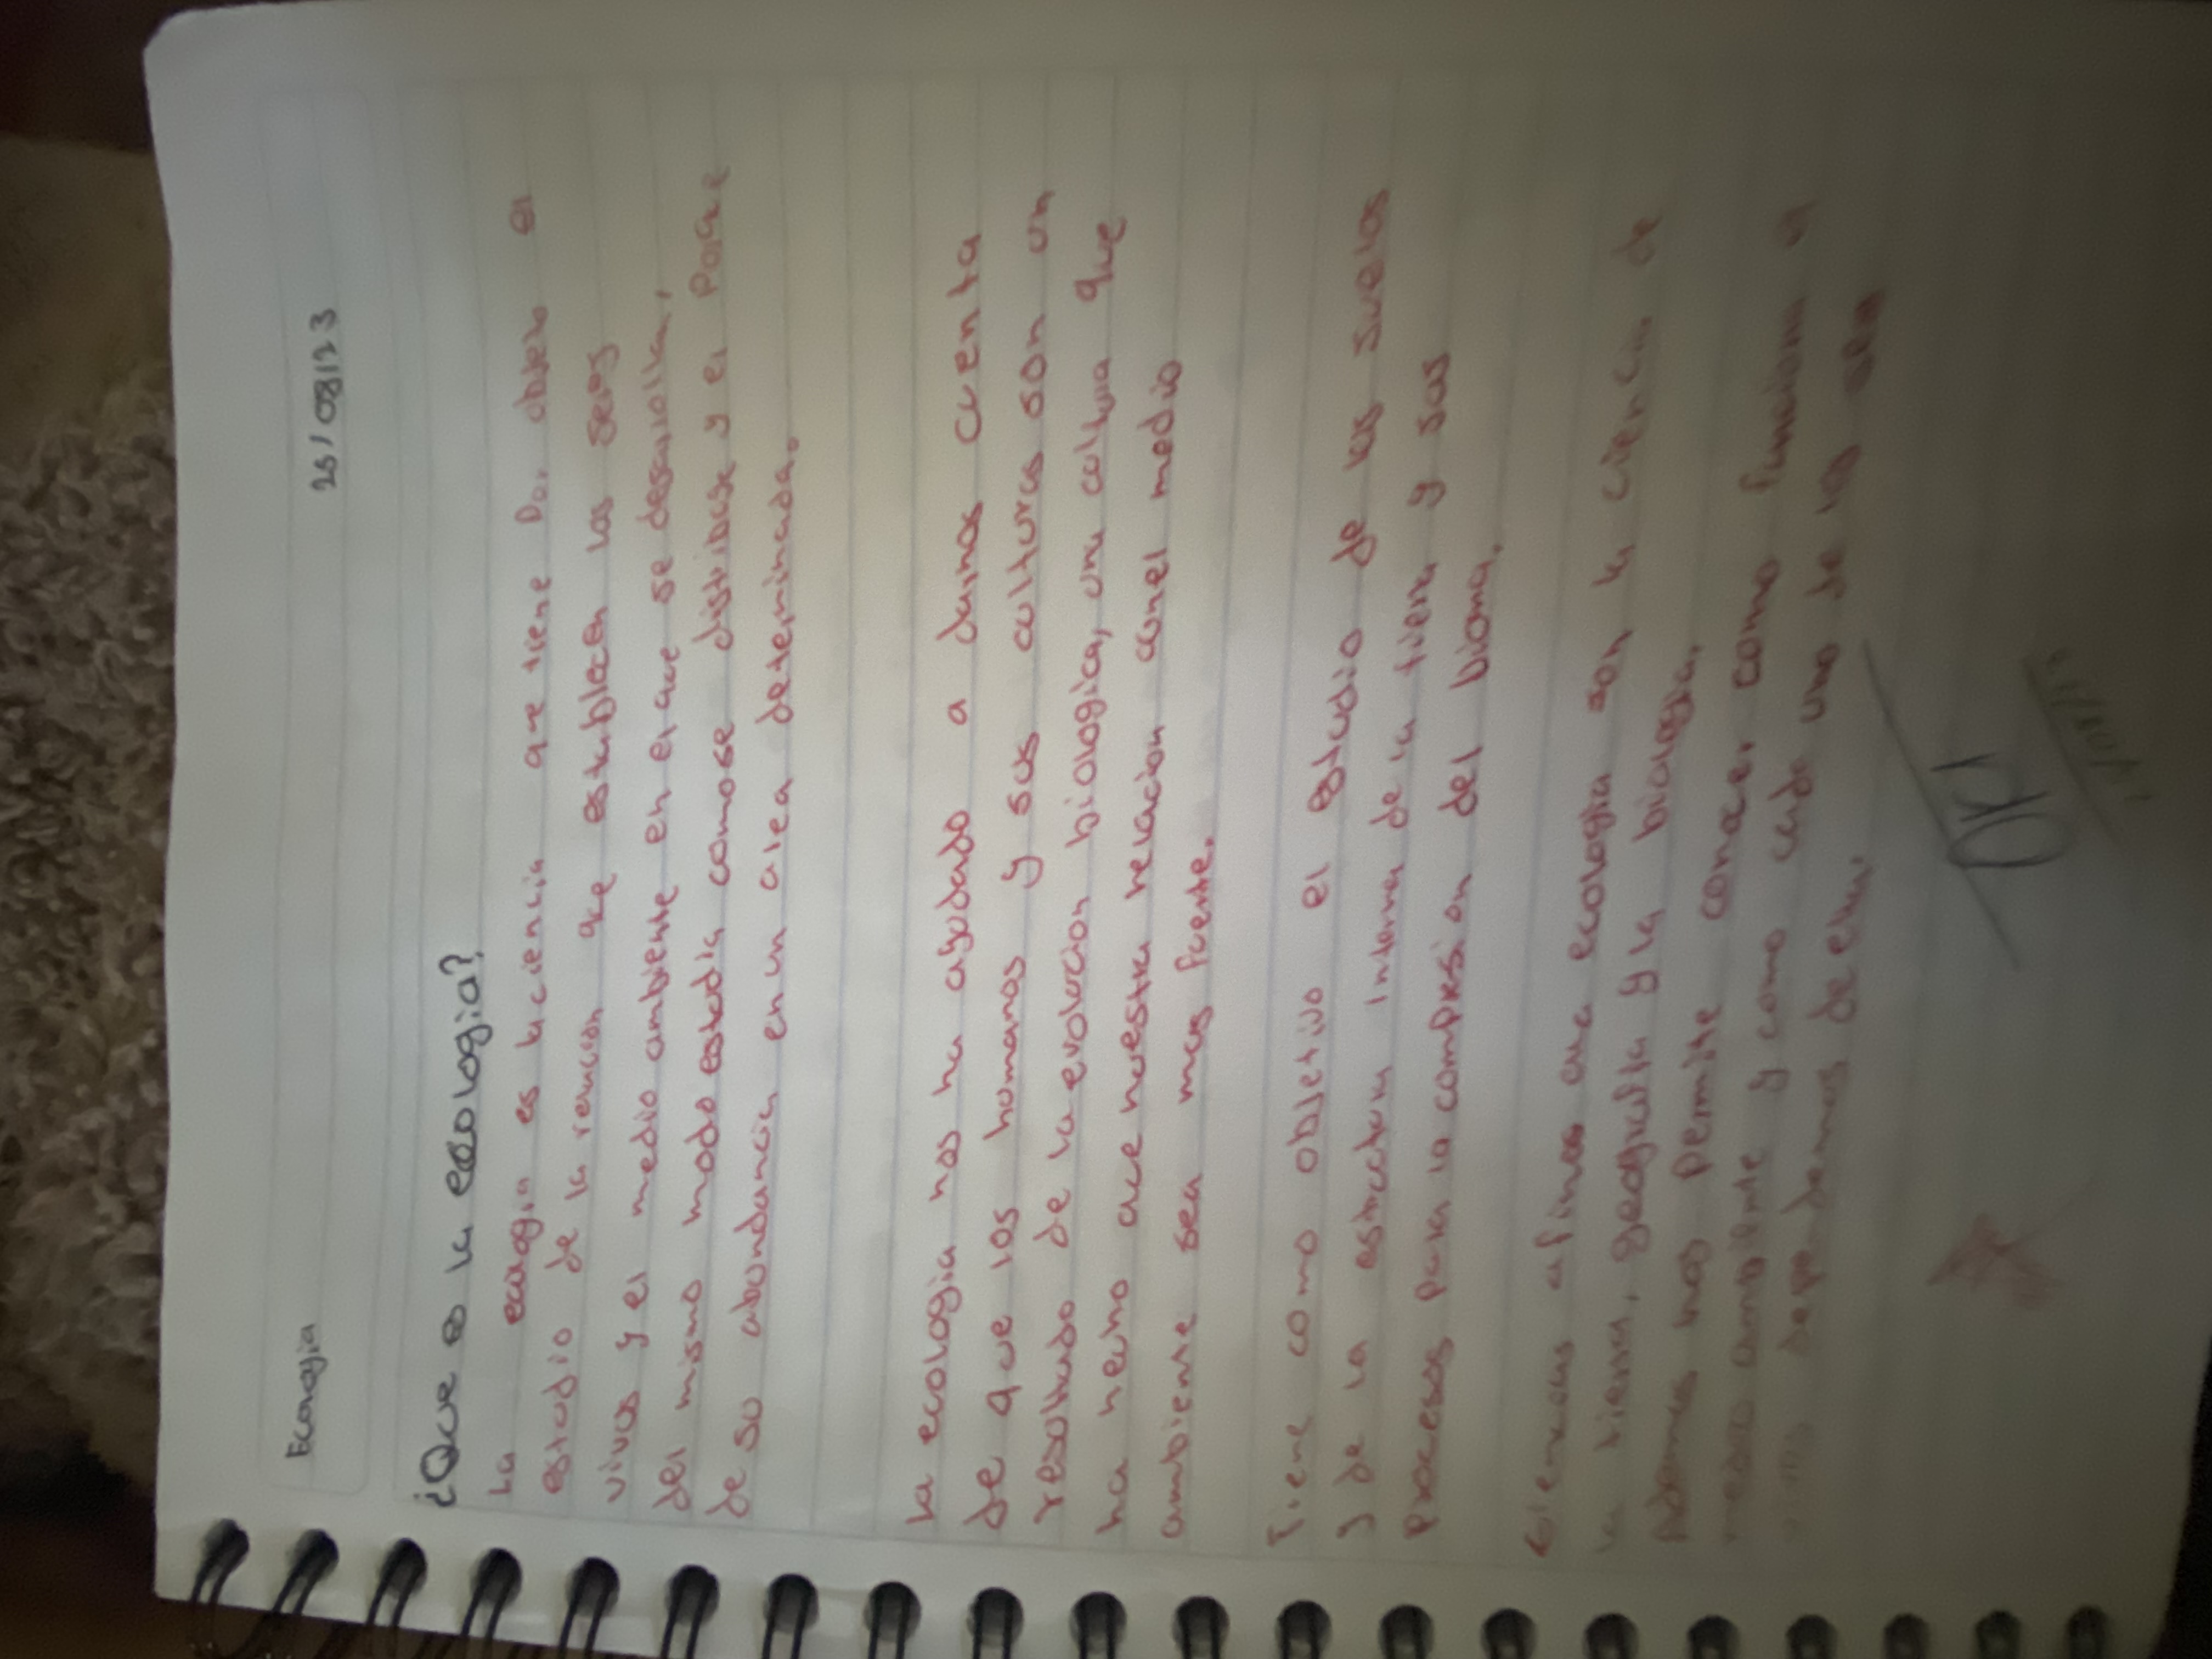 Ecología
25/08/23
¿Que es la ecología?
La ecología es la ciencia que tiene por objeto el
estudio de la relación que establecen los seres
vivos y el medio ambiente en el que se desarrolla,
del mismo modo estudia como se distribuye y el porque
de su abundancia en un area determinada.
La ecologia nos ha ayudado a darnos cuenta
de que los humanos y sus culturas son un
resultado de la evolucion biologica, una cultura que
ha hecho que nuestra relacion con el medio
ambiente sea mas fuerte.
Tiene como objetivo el estudio de los suelos
y de la estructura interna de la tierra y sus
procesos para la compresion del bioma.
Ciencias afines a la ecologia son la ciencia de
la tierra, geografia y la biologia.
Ademas nos permite conocer como funciona el
medio ambiente y como cada uno de los
dependemos de ella.